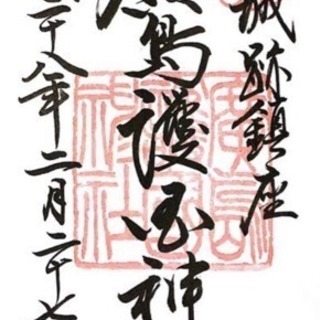 城跡鎮座
島護国神
二十八年二月二十七